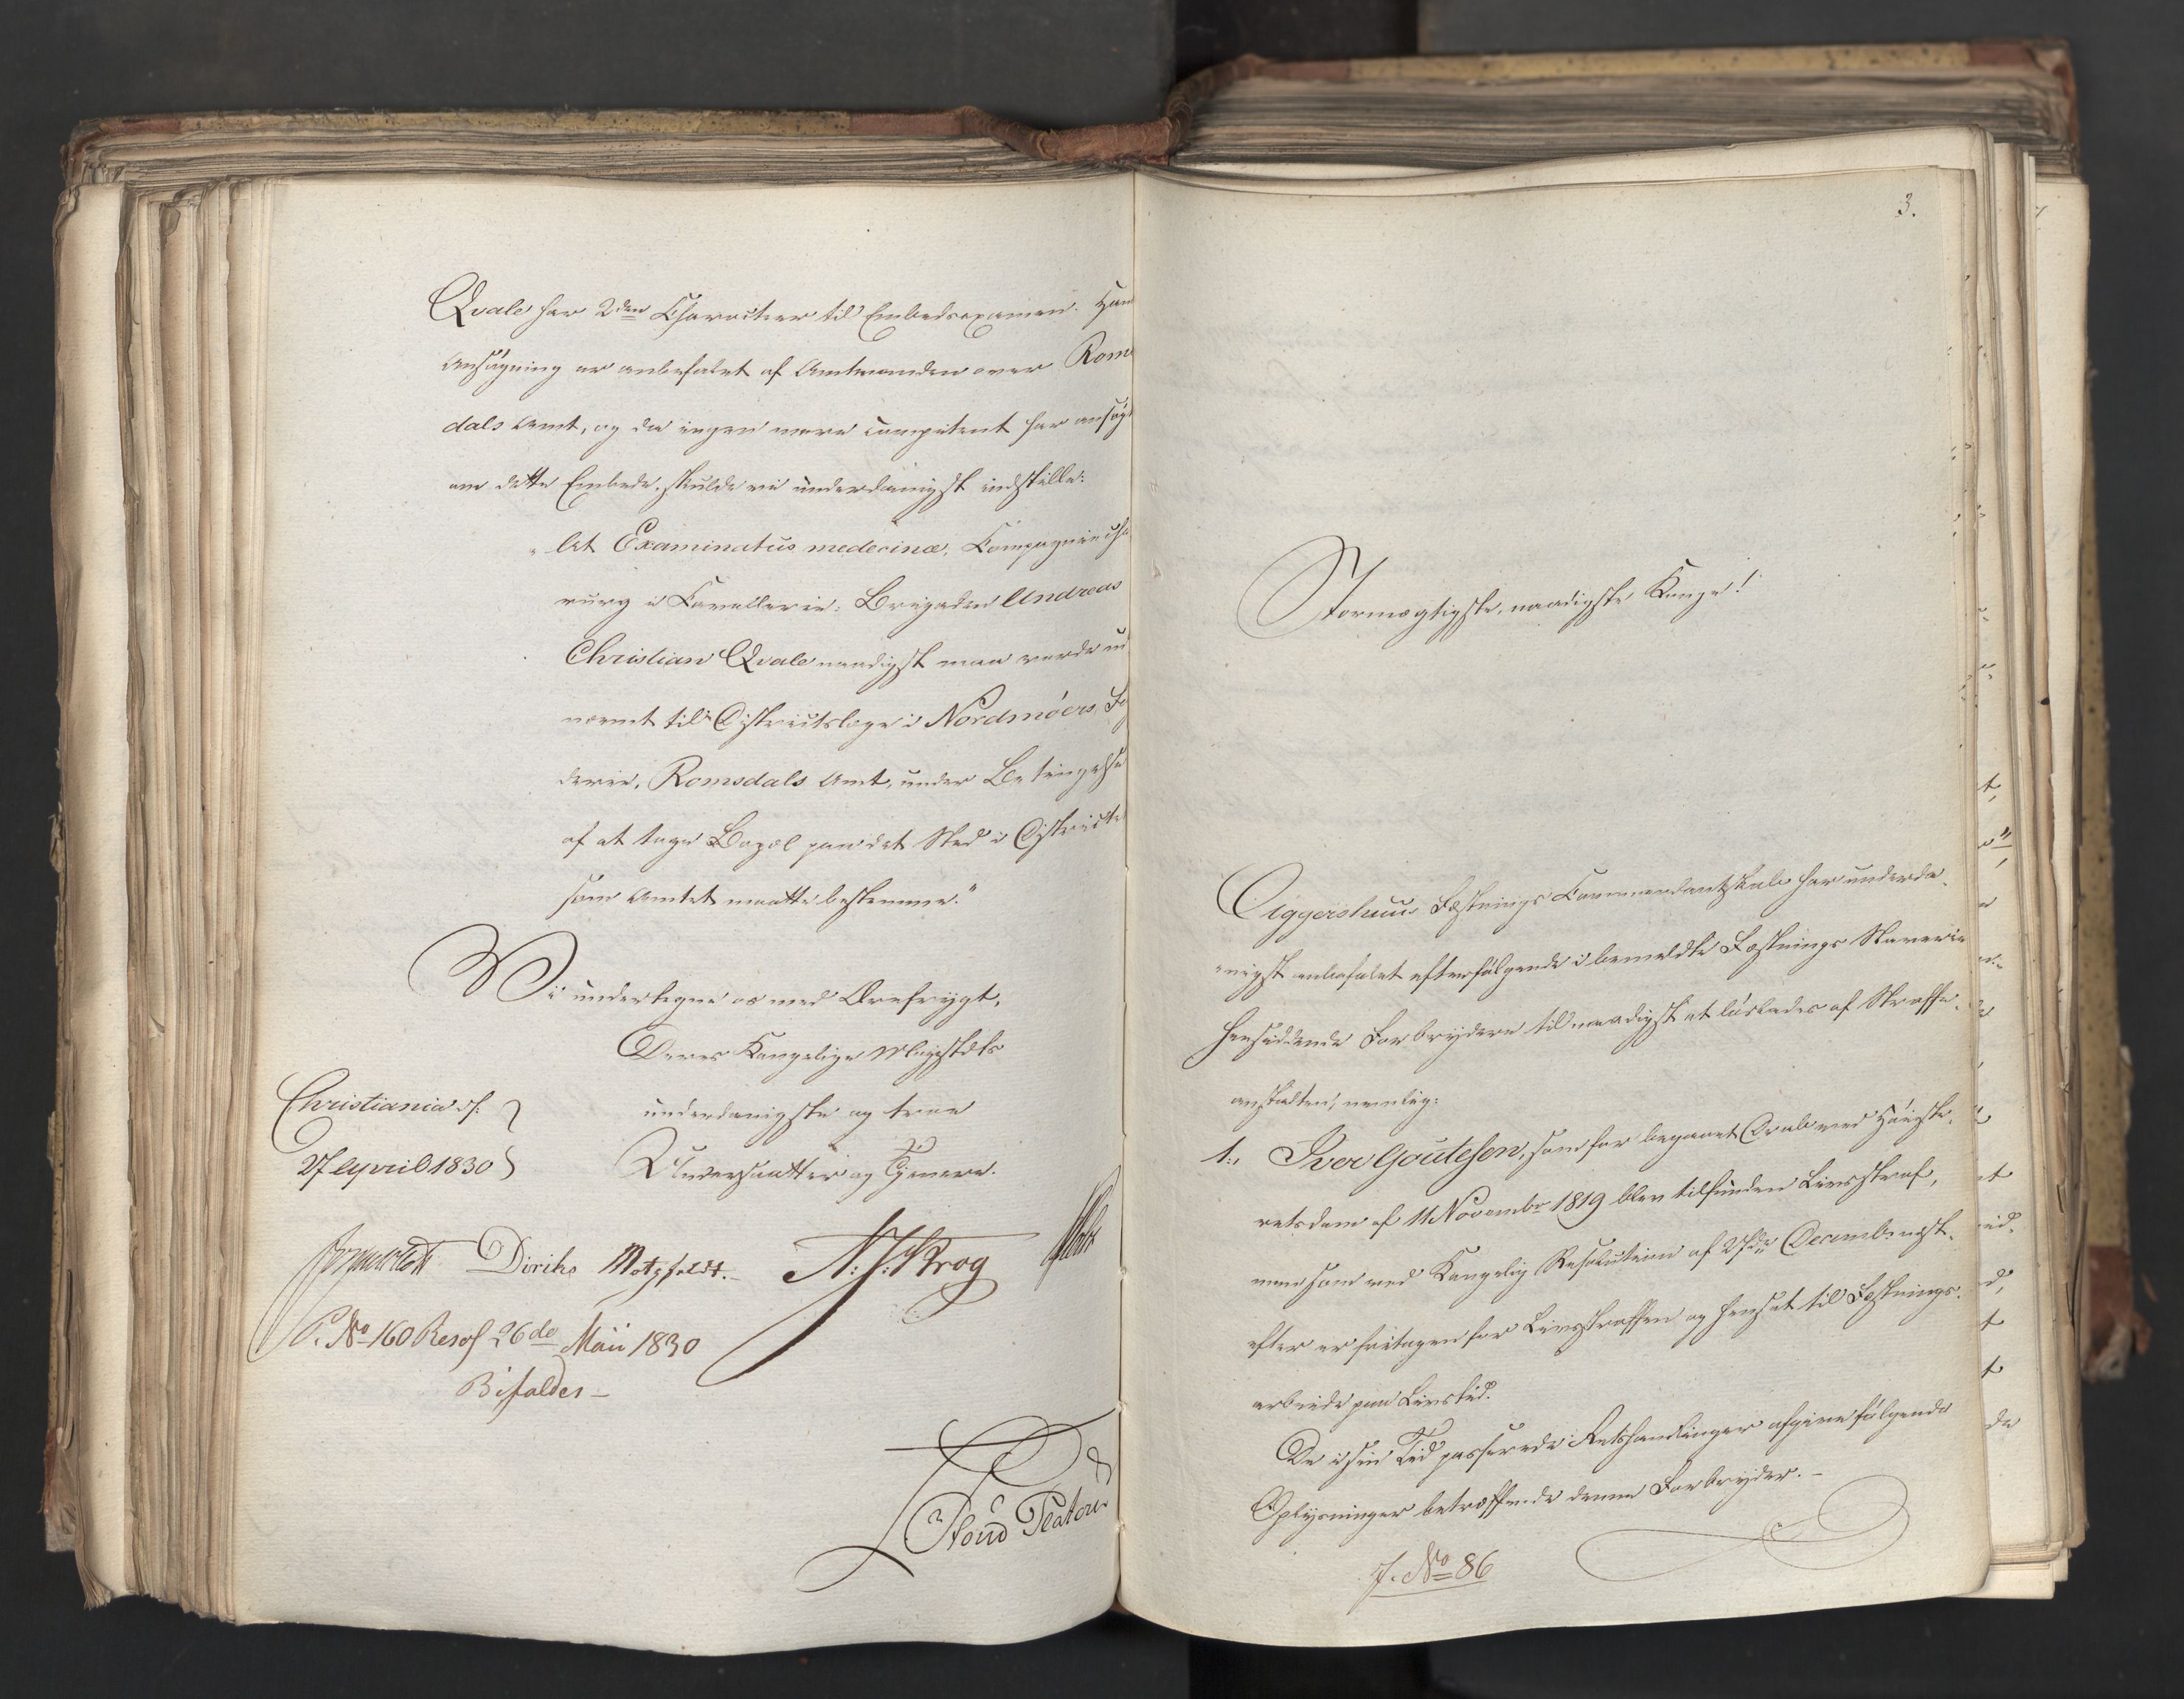 Qvale har 2den Charakteer til Embedsexamen. Han
Ansøgning er anbefalet af Amtmanden over Rom
dals Amt, og da ingen mere competent har ansøgt
om dette Embede, skulde vi underdanigst indstille:
"At Examinatus medecinæ, Compagniechi
rurg i Cavallerie-Brigaden Andreas
Christian Qvale naadigst maa vorde ud
nævnt til Districtslæge i Nordmöers Fo
derie, Romsdals Amt, under Betingelse
af at tage Bopæl paa det Sted i Districte
som Amtet maatte bestemme."
Vi undertegne os med Ærefrygt,
Deres Kongelige Majestæts
Christiania d:
underdanigste og troe
27 April 1830
Undersaatter og Tjenere.
Diriks Motzfeldt. N: J: Krog
P. No 160 Resol 26de Maii 1830
Bifaldes -
3.
Stormægtigste, naadigste Konge!
Aggershuus Fæstnings Commandantskab har underda-
nigst anbefalet efterfølgende i bemeldte Fæstnings Slaverie
hensiddende Forbrydere til naadigst at løslades af Straffe-
anstalten, nemlig:
1., Iver Goutesen, som for begaaet Drab ved Høieste-
retsdom af 11 Novembr 1819 blev tilfunden Livsstraf,
men som ved Kongelig Resolution af 27de Decemb: næst-
efter er fritagen for Livsstraffen og hensat til Fæstnings-
arbeide paa Livstid.
De i sin Tid passerede Retshandlinger afgive følgende
Oplysninger betræffende denne Forbryder. -
J. No 86